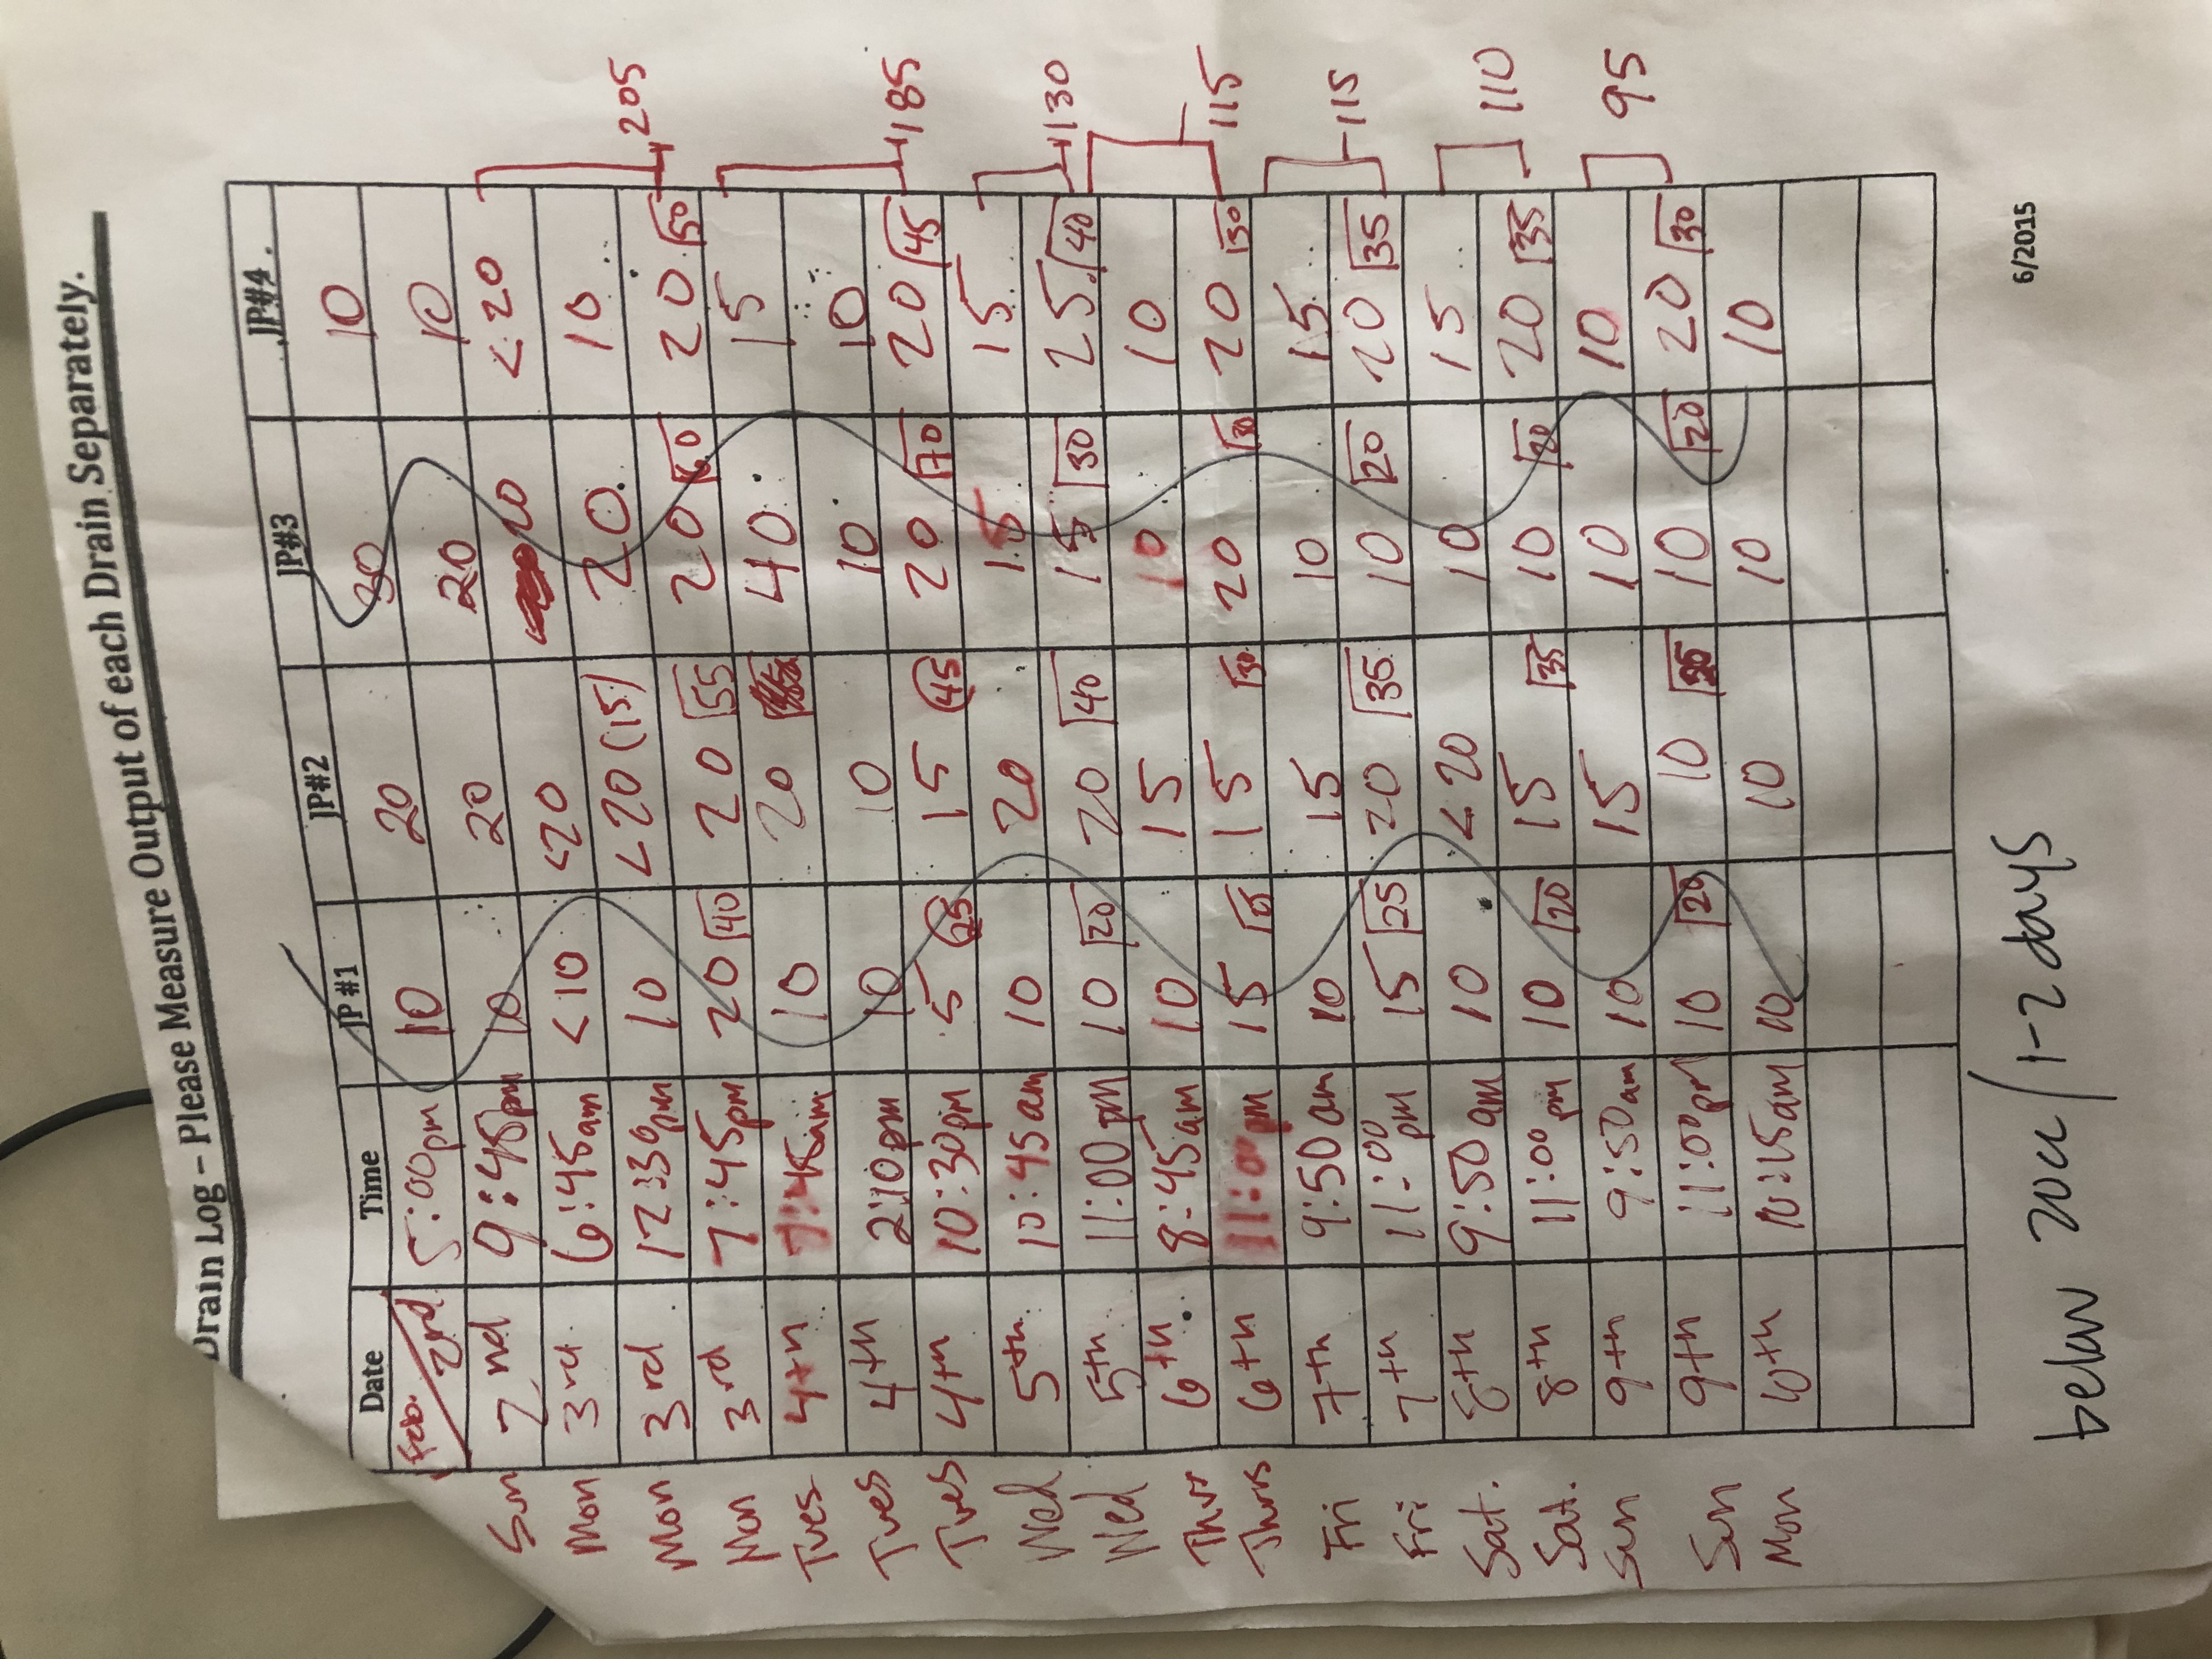 Drain Log – Please Measure Output of each Drain Separately.
Date Time JP #1 JP#2 JP#3 JP#4
Feb. 2nd 5:00pm 10 20 30 10
Sun 2nd 9:45pm 10 20 20 10
Mon 3rd 6:45am <10 <20 20 <20
Mon 3rd 12:30pm 10 <20 (15) 20 10
Mon 3rd 7:45pm 20 40 20 55 20 60 20 50 205
Tues 4th 7:45am 10 20 40 15
Tues 4th 2:10pm 10 10 10 10
Tues 4th 10:30pm 5 25 15 45 20 70 20 45 185
Wed 5th 10:45am 10 20 15 15
Wed 5th 11:00pm 10 20 20 40 15 30 25 40 130
Thurs 6th 8:45am 10 15 10 10
Thurs 6th 11:00pm 15 15 30 20 30 20 30 115
Fri 7th 9:50am 10 15 10 15
Fri 7th 11:00pm 15 25 20 35 10 20 20 35 115
Sat. 8th 9:50am 10 <20 10 15
Sat. 8th 11:00pm 10 20 15 35 10 20 20 35 110
Sun 9th 9:50am 10 15 10 10
Sun 9th 11:00pm 10 20 10 10 20 20 30 95
Mon 10th 10:15am 10 10 10 10
below 20cc/1-2 days
6/2015